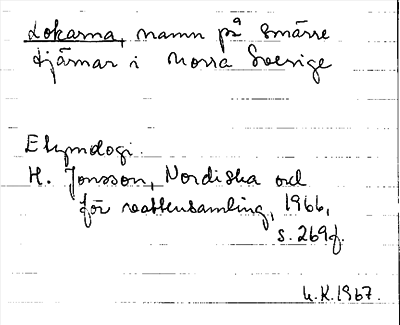 Lokarna, namn på smärre
tjärnar i Norra Sverige
Etymologi.
H. Jonsson, Nordiska ord
för vattensamling, 1966,
s. 269f.
H.K. 1967.